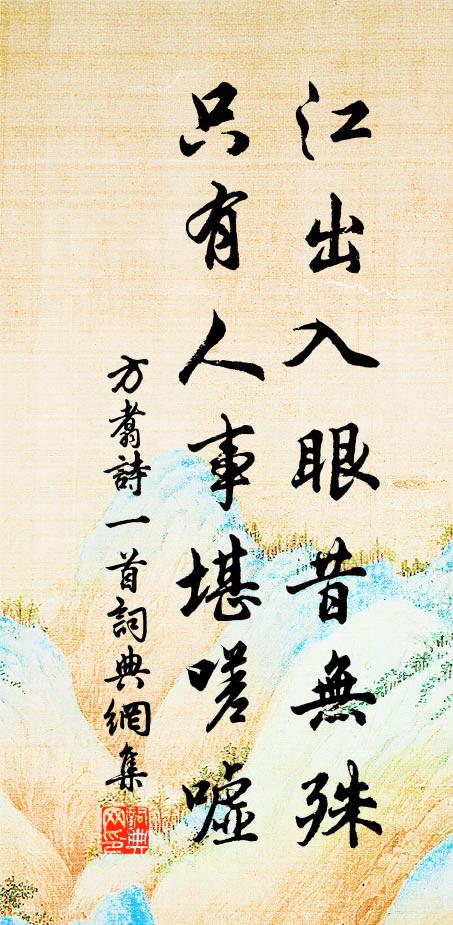 江出入眼昔無殊
只有人事堪嗟嘘
方翥詩一首詞典網集
詞典
网印